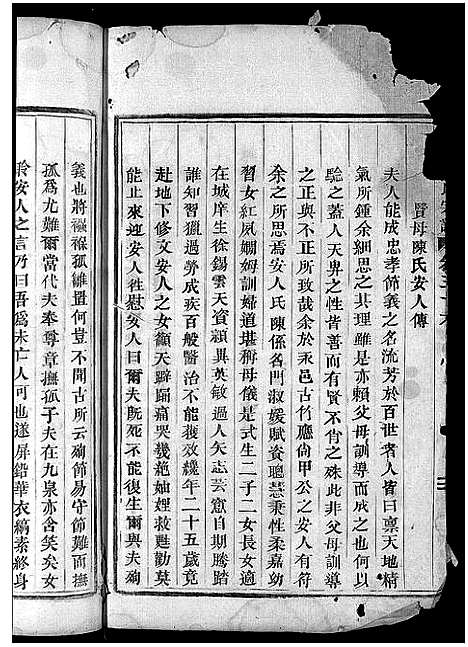 賢母陳氏安人傳
夫人能成忠孝節義之名流芳於百世者人皆曰禀天地精
氣所鍾余細思之其理雖是亦賴父母訓導而成之也何以
騐之蓋人天畀之性皆善而有賢不肖之殊此非父母訓導
之正與不正所致哉余於汞邑古竹廳尙甲公之安人有符
余之所思焉安人氏陳係名門淑媛賦資聰慧秉性柔嘉幼
習女紅夙嫻姆訓婦道堪稱母儀是式生二子二女長女適
在城庠生徐錫雲天資穎異英敏過人矢志芸窻自期騰踏
誰知習獵過勞成疾百般醫治不能獲效纔年二十五歲竟
赴地下修文安人之女顲天擗踊痛哭幾絶妯娌救甦勸莫
能止來迎安人徃慰安人曰爾夫旣死不能復生爾與夫殉
義也將襁褓孤雛置何豈不聞古所云殉節易守節難而撫
孤爲尤難爾當代夫奉尊章撫孤子夫在九泉亦含笑矣女
聆安人之言乃曰吾爲未亡人可也遂屏鉛華衣縞素終身